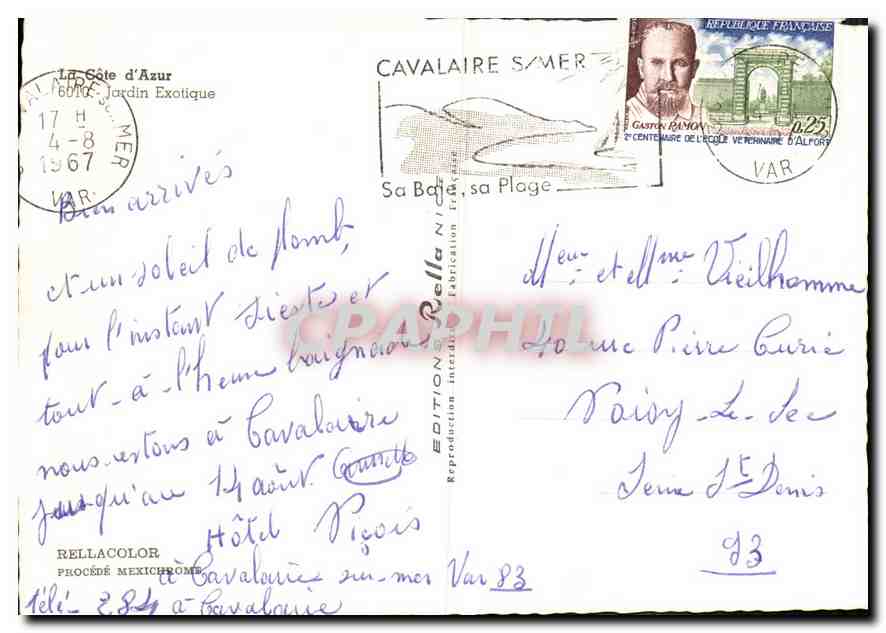 La Côte d'Azur
6010 - Jardin Exotique
17 H
4-8
1967
MER
VAR
CAVALAIRE S/MER
Sa Baie, sa Plage
RÉPUBLIQUE FRANÇAISE
GASTON RAMON
0,25
2e CENTENAIRE DE L'ÉCOLE VÉTÉRINAIRE D'ALFORT
VAR
Bien arrivés
et un soleil de plomb,
pour l'instant sieste et
tout-à-l'heure baignade
nous restons à Cavalaire
jusqu'au 14 août.
Hôtel
à Cavalaire sur-mer Var 83
télé- 284 à Cavalaire
RELLACOLOR
PROCÉDÉ MEXICHROME
EDITIONS Rella NICE
Reproduction interdite Fabrication Française
CPAPHIL
Meur et Mme Vieilhomme
40 rue Pierre Curie
Noisy-Le-Sec
Seine St Denis
93